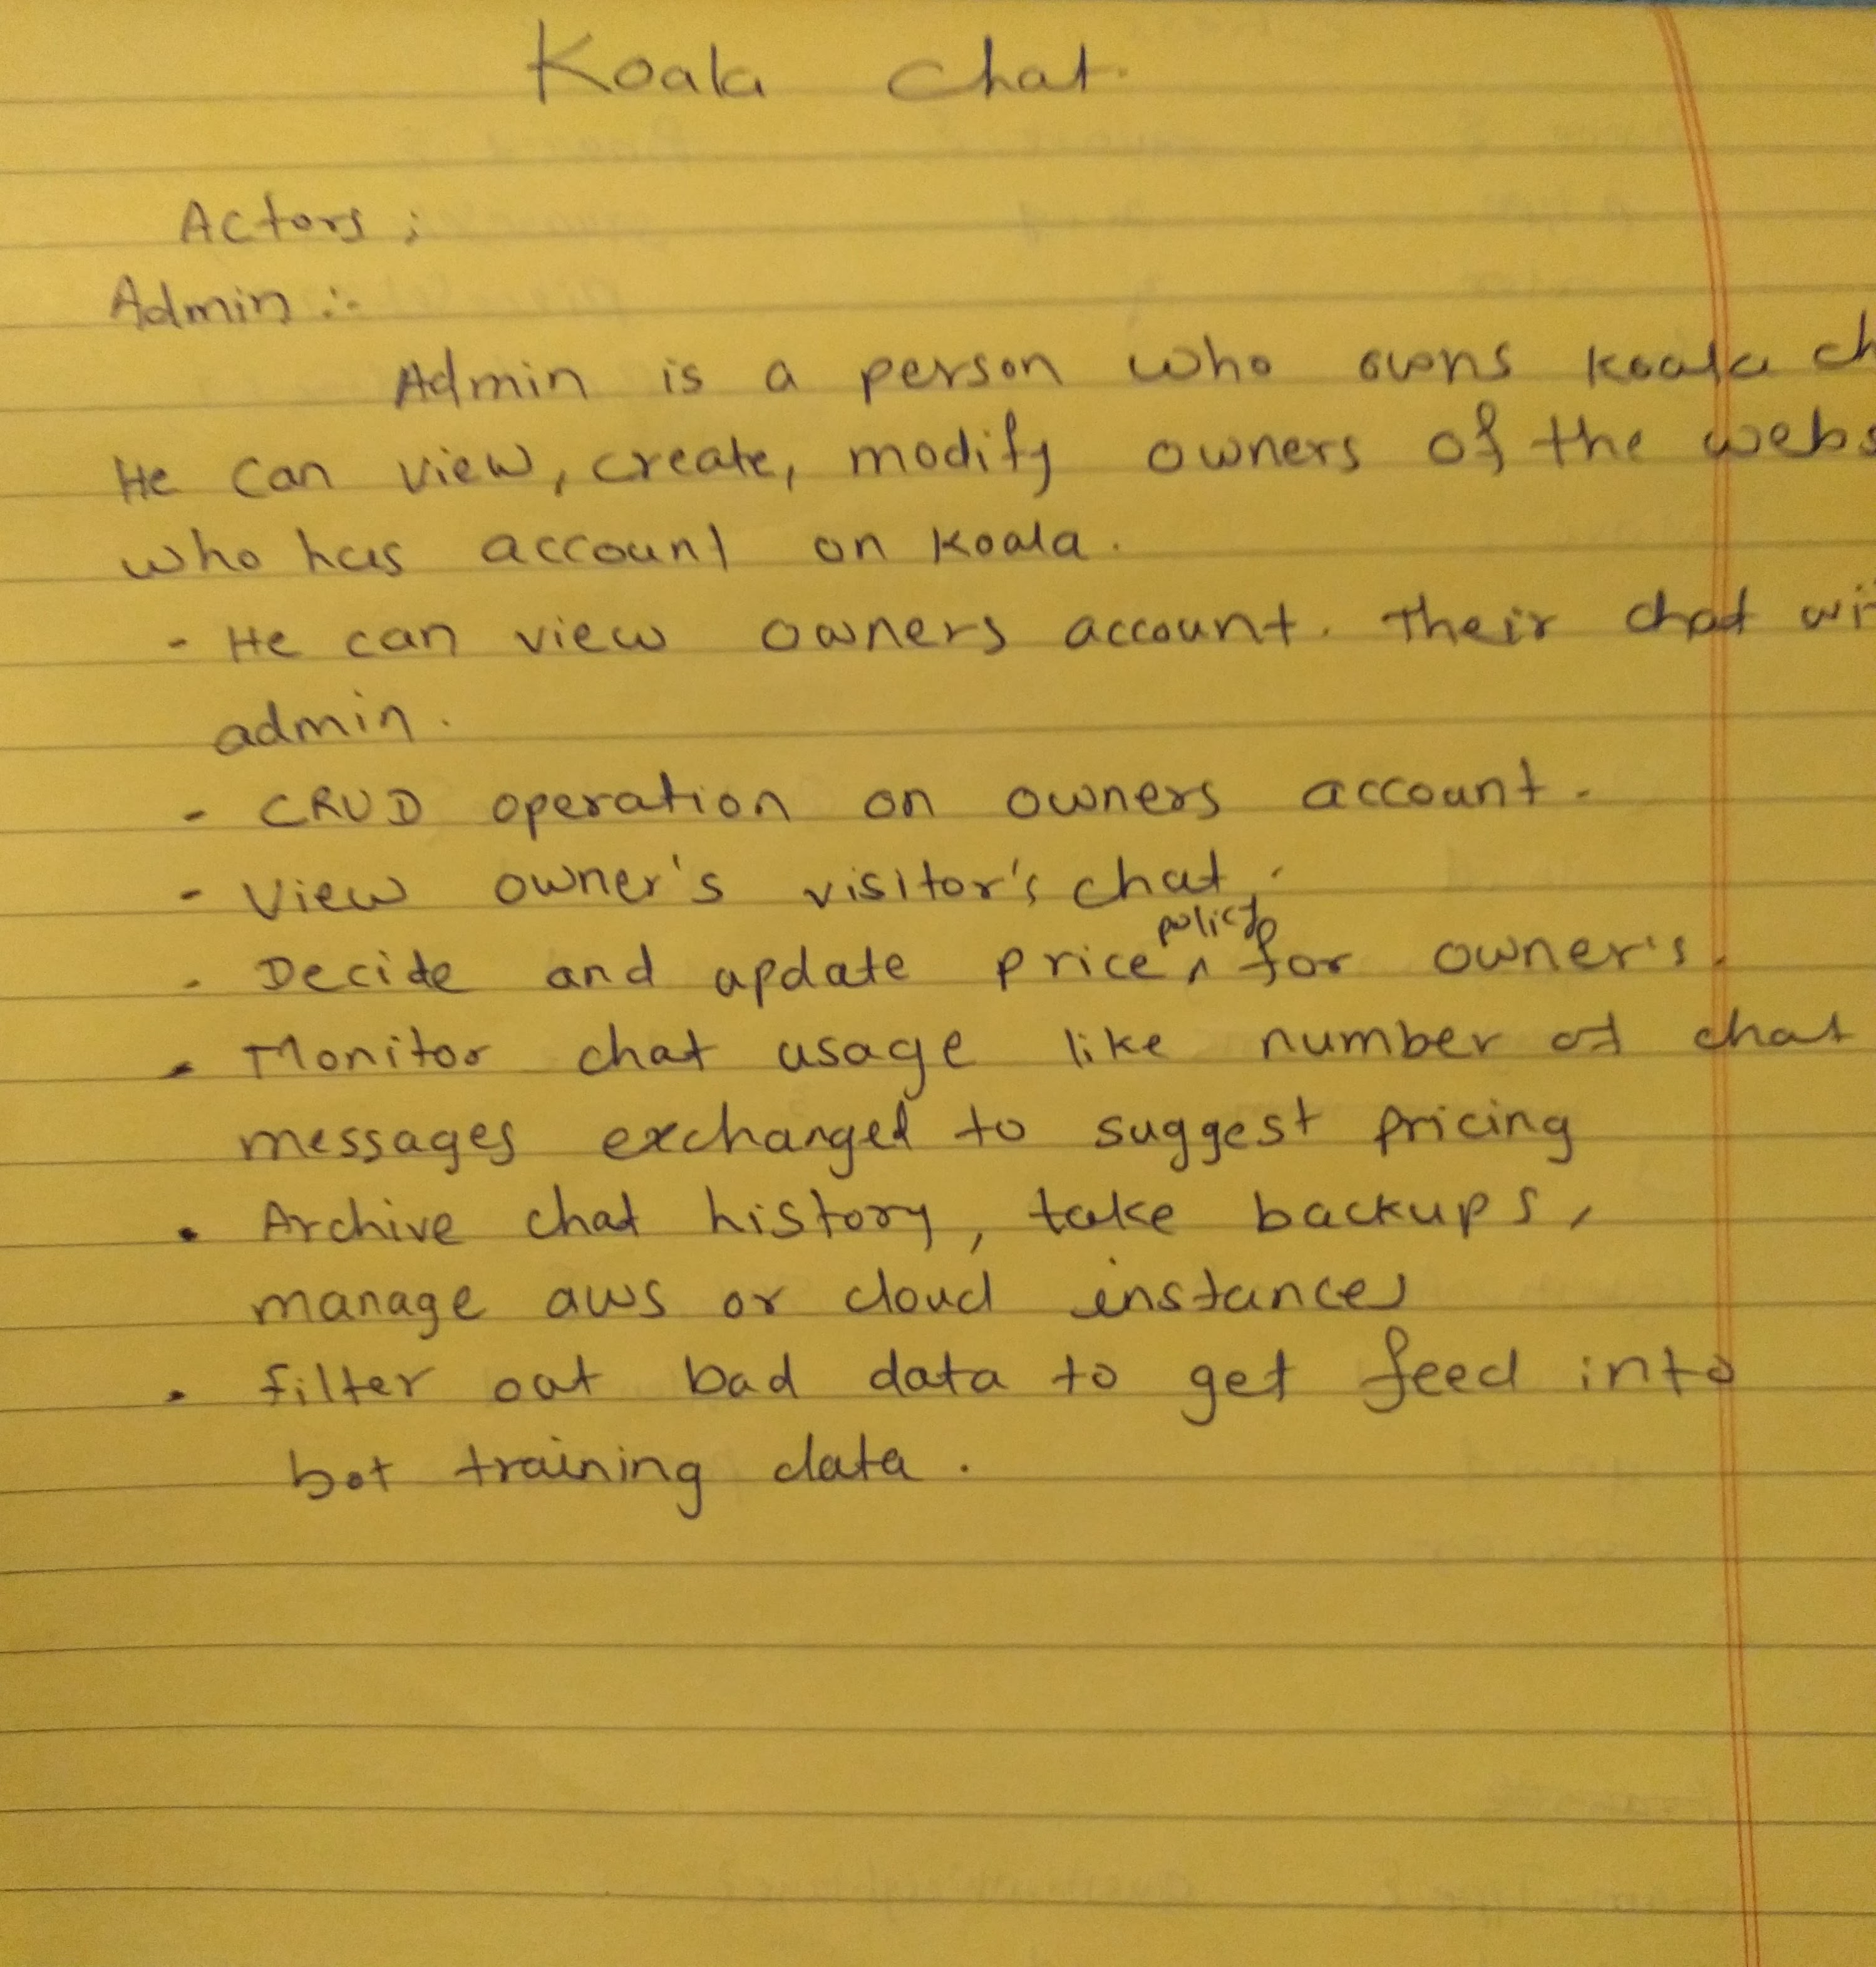 Koala chat.
Actors :
Admin :-
Admin is a person who owns koala ch
He can view, create, modify owners of the webs
who has account on Koala.
- He can view owners account. Their chat wi
admin.
- CRUD operation on owners account.
- View owner's visitor's chat.
- Decide and update price policy for owner's.
- Monitor chat usage like number of chat
messages exchanged to suggest pricing
• Archive chat history, take backups,
manage aws or cloud instances
• filter out bad data to get feed into
bot training data.